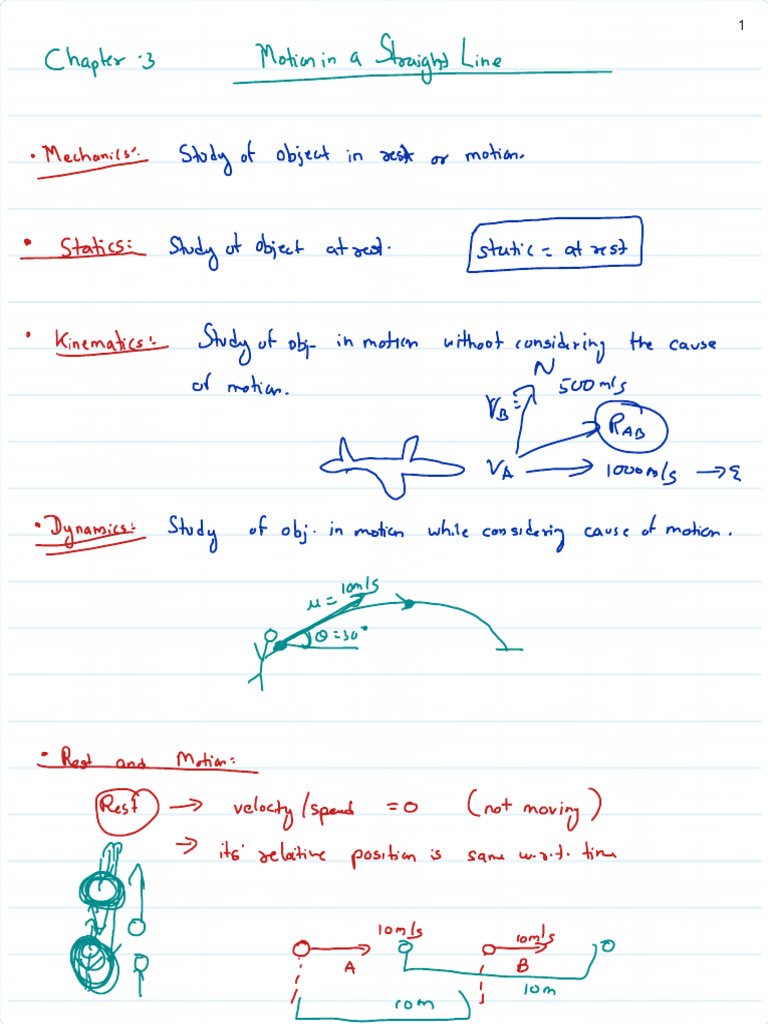 1
Chapter :3 Motion in a Straight Line
• Mechanics: Study of object in rest or motion.
• Statics: Study of object at rest. static = at rest
• Kinematics: Study of obj- in motion without considering the cause
of motion.
N
500 m/s
VB =
RAB
VA → 1000 m/s → E
• Dynamics: Study of obj. in motion while considering cause of motion.
u = 10m/s
θ = 30°
• Rest and Motion:
Rest → velocity/speed = 0 (not moving)
→ its relative position is same w.r.t. time
10m/s 10m/s
A B
10m
10m